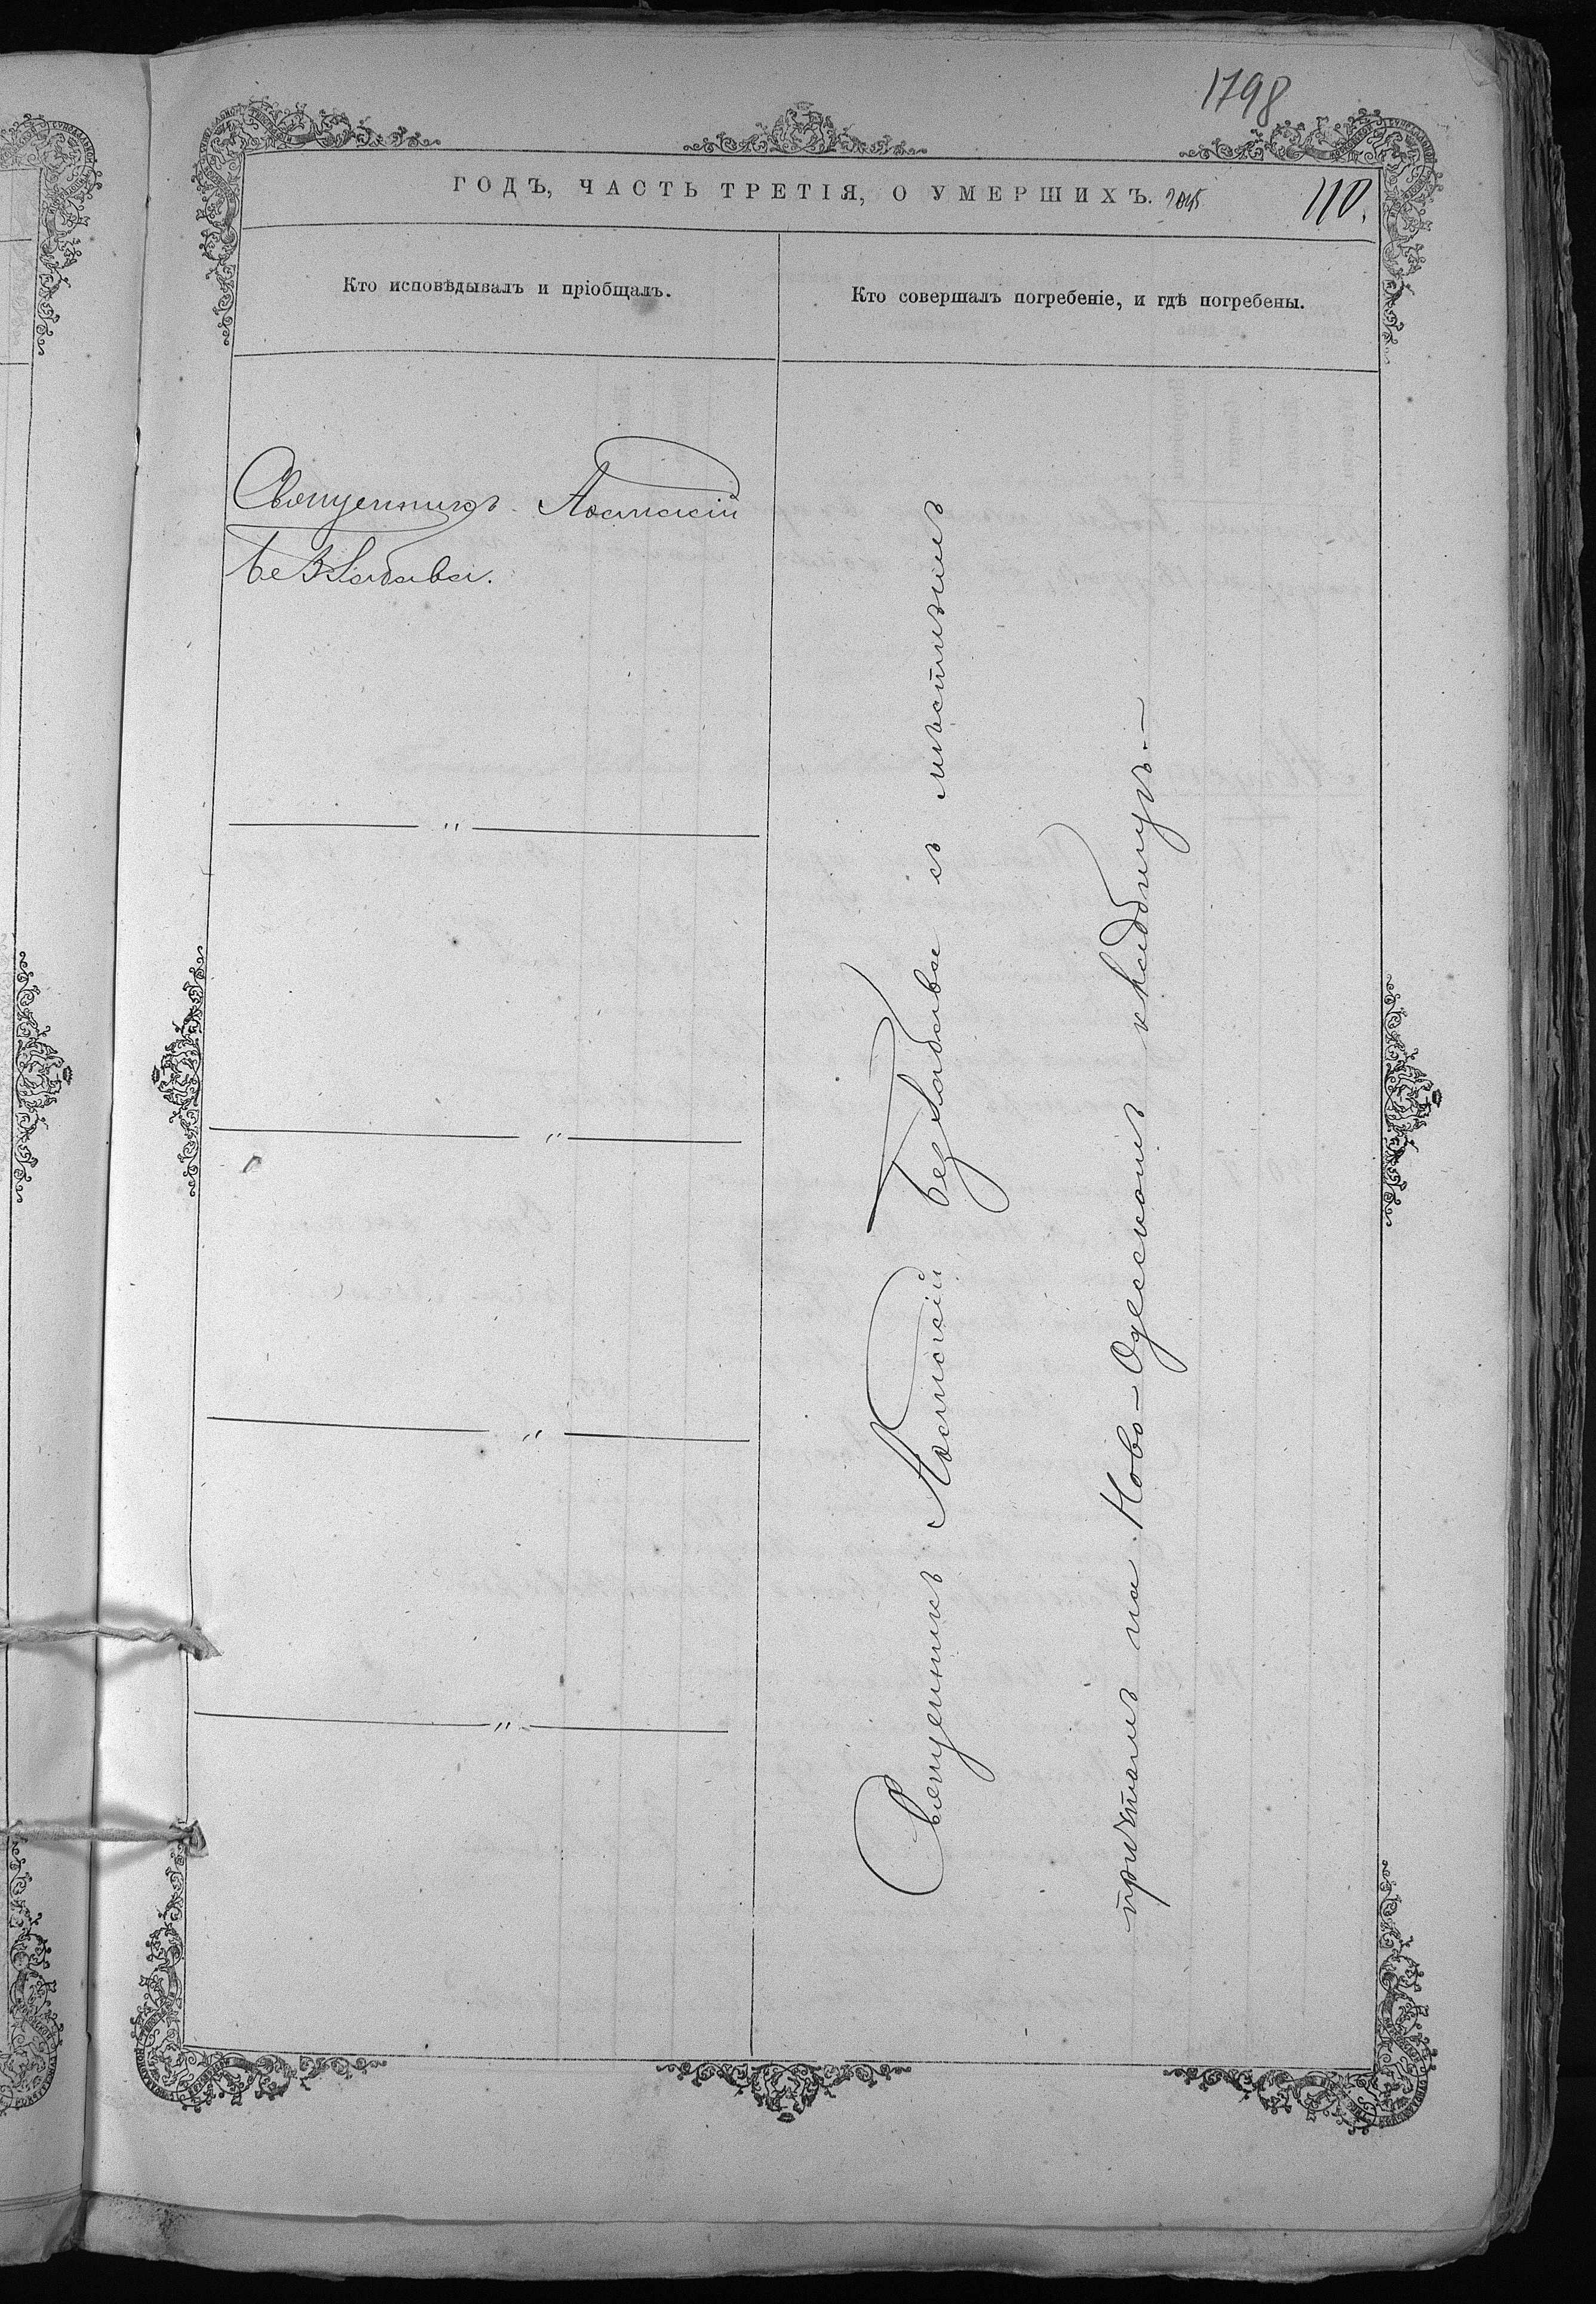 1798
ГОДЪ, ЧАСТЬ ТРЕТІЯ, О УМЕРШИХЪ.
110.
Кто исповѣдывалъ и пріобщалъ.
Кто совершалъ погребеніе, и гдѣ погребены.
Священникъ
БезЗабава.
Священникъ Беззабава съ мѣстнымъ
причтомъ на Ново-Одесскомъ кладбищѣ.—